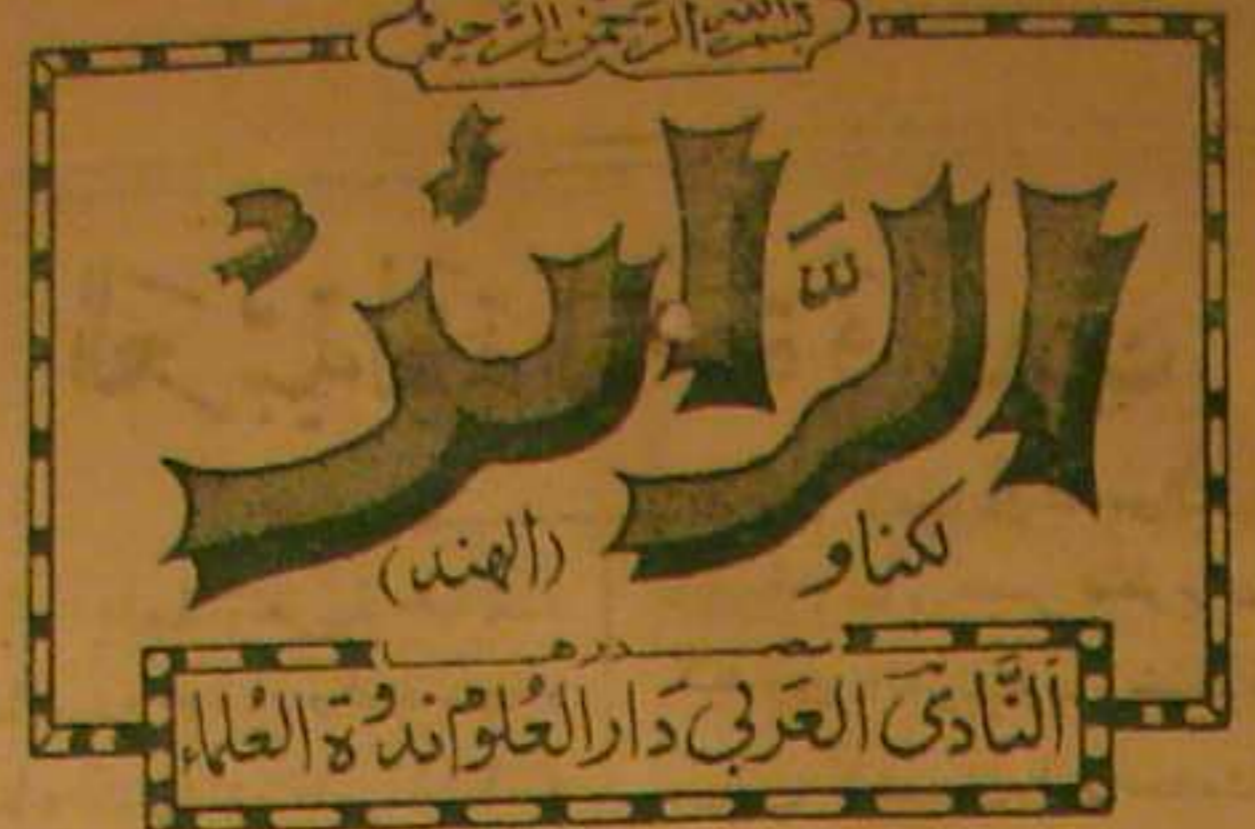 بسم الله الرحمن الرحيم
الرَّائدُ
لكناو (الهند)
يصدرها
اَلنَّادِى العَرَبي دَار العُلوم نَدوَة العُلماء